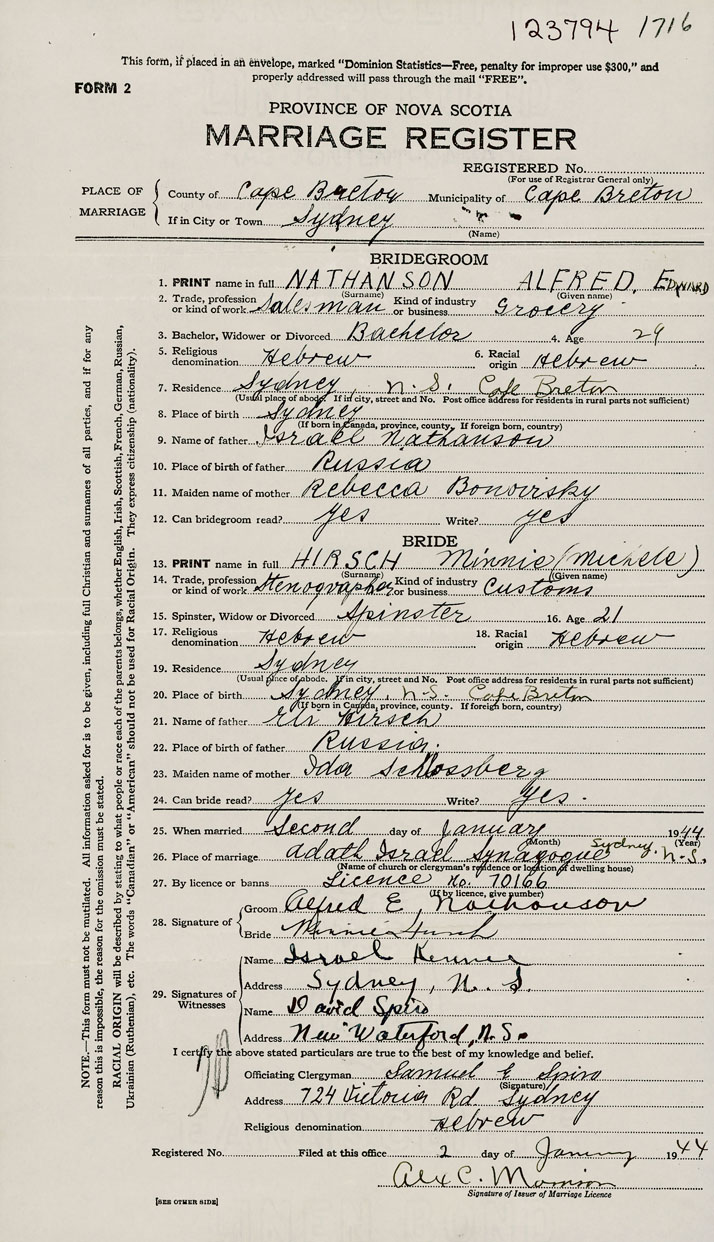 123794 1716
This form, if placed in an envelope, marked "Dominion Statistics—Free, penalty for improper use $300," and
properly addressed will pass through the mail "FREE".
FORM 2
PROVINCE OF NOVA SCOTIA
MARRIAGE REGISTER
REGISTERED No.
(For use of Registrar General only)
PLACE OF MARRIAGE
County of Cape Breton Municipality of Cape Breton
If in City or Town Sydney
(Name)
BRIDEGROOM
1. PRINT name in full NATHANSON ALFRED, EDWARD
(Surname) (Given name)
2. Trade, profession or kind of work Salesman Kind of industry or business Grocery
3. Bachelor, Widower or Divorced Bachelor 4. Age 29
5. Religious denomination Hebrew 6. Racial origin Hebrew
7. Residence Sydney, N.S. Cape Breton
(Usual place of abode. If in city, street and No. Post office address for residents in rural parts not sufficient)
8. Place of birth Sydney
(If born in Canada, province, county. If foreign born, country)
9. Name of father Israel Nathanson
10. Place of birth of father Russia
11. Maiden name of mother Rebecca
12. Can bridegroom read? yes Write? yes
BRIDE
13. PRINT name in full HIRSCH Minnie (Michele)
(Surname) (Given name)
14. Trade, profession or kind of work Stenographer Kind of industry or business Customs
15. Spinster, Widow or Divorced Spinster 16. Age 21
17. Religious denomination Hebrew 18. Racial origin Hebrew
19. Residence Sydney
(Usual place of abode. If in city, street and No. Post office address for residents in rural parts not sufficient)
20. Place of birth Sydney, N.S. Cape Breton
(If born in Canada, province, county. If foreign born, country)
21. Name of father Eli Hirsch
22. Place of birth of father Russia.
23. Maiden name of mother Ida Schlossberg
24. Can bride read? yes Write? Yes.
25. When married Second day of January 1944
(Month) (Year)
26. Place of marriage Adath Israel Synagogue Sydney, N.S.
(Name of church or clergyman's residence or location of dwelling house)
27. By licence or banns Licence No. 70166
(If by licence, give number)
28. Signature of
Groom Alfred E Nathanson
Bride Minnie Hirsch
29. Signatures of Witnesses
Name Israel
Address Sydney, N. S.
Name David Spiro
Address New Waterford, N.S.
I certify the above stated particulars are true to the best of my knowledge and belief.
Officiating Clergyman Samuel E Spiro
(Signature)
Address 724 Victoria Rd Sydney
Religious denomination Hebrew
Registered No. Filed at this office 2 day of January 1944
Alex C. Morrison
Signature of Issuer of Marriage Licence
[SEE OTHER SIDE]
NOTE.—This form must not be mutilated. All information asked for is to be given, including full Christian and surnames of all parties, and if for any
reason this is impossible, the reason for the omission must be stated.
RACIAL ORIGIN will be described by stating to what people or race each of the parents belongs, whether English, Irish, Scottish, French, German, Russian,
Ukrainian (Ruthenian), etc. The words "Canadian" or "American" should not be used for Racial Origin. They express citizenship (nationality).